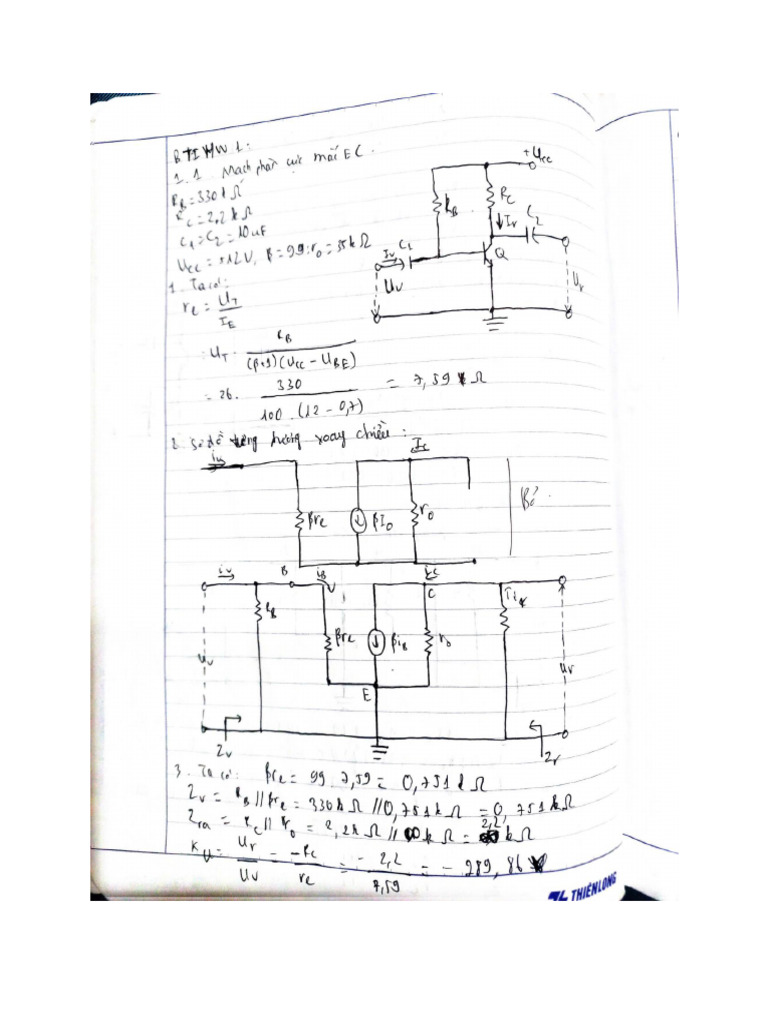 BTVN 1:
1.1 Mạch phân cực mắc EC.
R_B = 330 kΩ
R_C = 2,2 kΩ
C1 = C2 = 10uF
U_CC = 12V, β = 99; r_o = 35kΩ
+ U_CC
R_B
R_C
I_r
C_2
C_1
I_v
Q
U_v
U_r
1. Ta có:
r_e = U_T / I_E
= U_T . R_B / (β+1)(U_CC - U_BE)
= 26. 330 / 100 . (12 - 0,7) = 7,59 Ω
2. Sơ đồ tương đương xoay chiều:
I_c
βr_e
βI_0
r_o
Bỏ.
i_v
B
i_B
i_C
C
R_B
βr_e
βi_B
r_o
U_v
U_r
E
Z_v
Z_r
3. Ta có: βr_e = 99 . 7,59 = 0,751 kΩ
Z_v = R_B // βr_e = 330 kΩ // 0,751 kΩ = 0,751 kΩ
Z_ra = R_C // r_o = 2,2k Ω // kΩ = 2,2 kΩ
K_U = U_r / U_v = -R_C / r_e = - 2,2 / 7,59 = - 289,86
THIÊN LONG